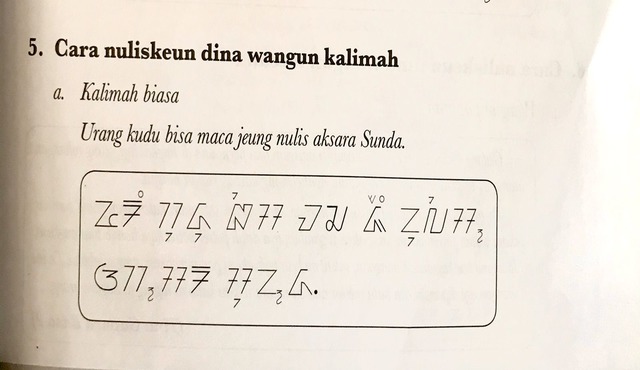 5. Cara nuliskeun dina wangun kalimah
a. Kalimah biasa
Urang kudu bisa maca jeung nulis aksara Sunda.
ᮅᮛᮀ ᮊᮥᮓᮥ ᮘᮤᮞ ᮙᮎ ᮏᮩᮀ ᮔᮥᮜᮤᮞ᮪
ᮃᮊ᮪ᮞᮛ ᮞᮥᮔ᮪ᮓ.